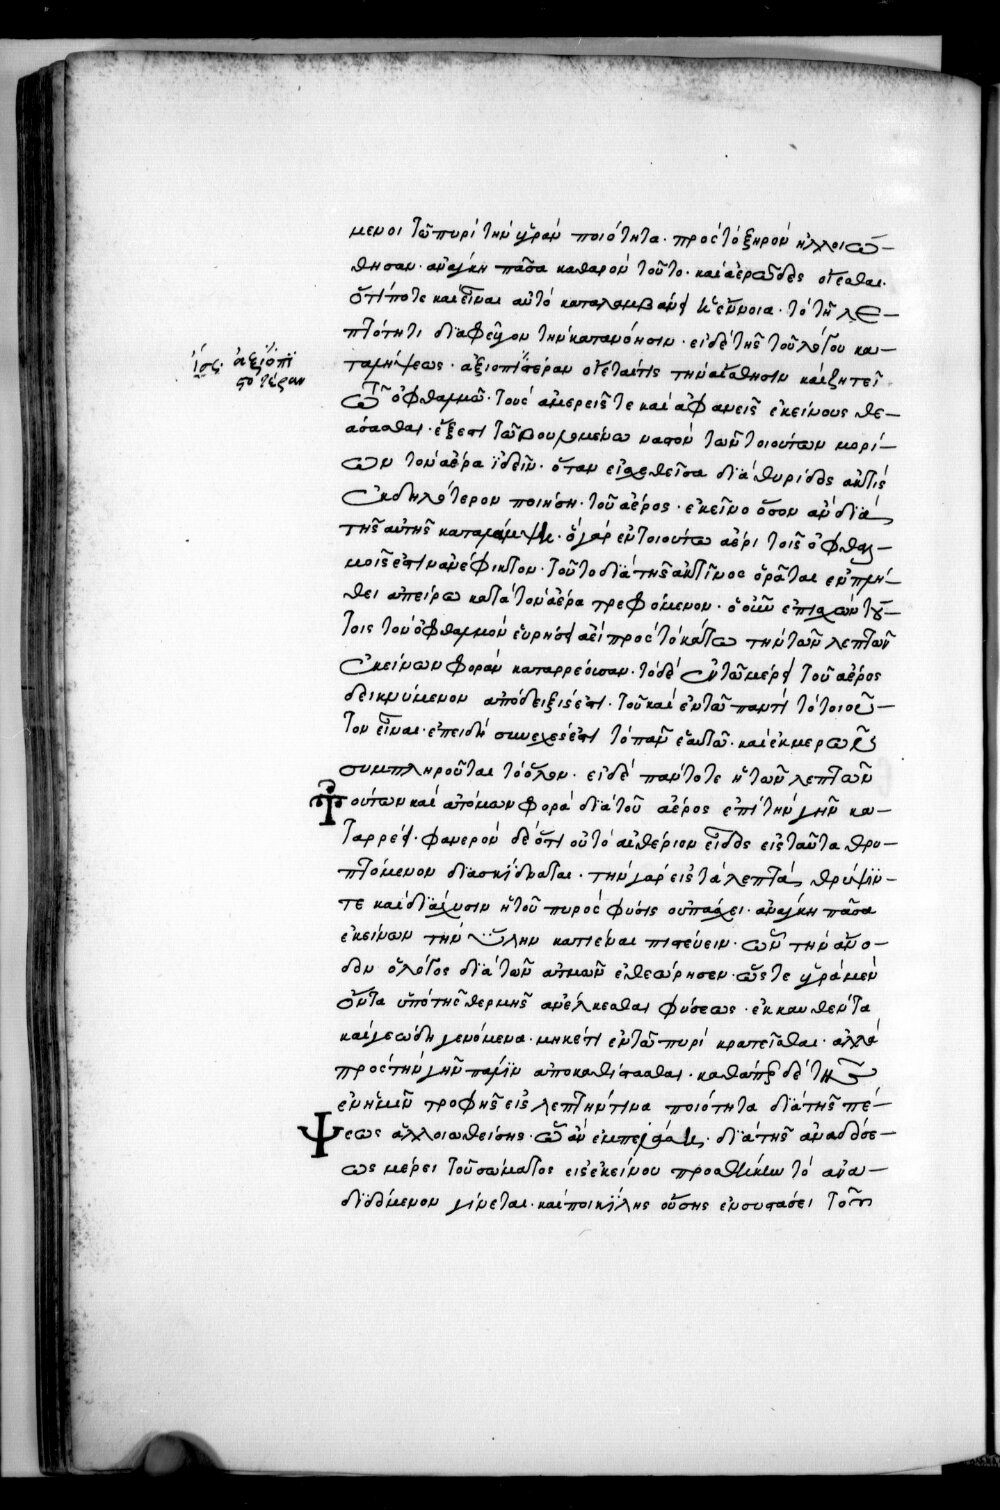 μενοι τῶ πυρὶ τὴν ὑγρὰν ποιότητα · πρὸς τὸ ξηρὸν ἠλλοιώ-
θησαν · ἀνάγκη πᾶσα καθαρὸν τοῦτο · καὶ ἀερῶδες οἴεσθαι ·
ὅτί ποτε καὶ εἶναι αὐτὸ καταλαμβάνει ἡ ἔννοια · τὸ τῆ λε-
πτότητι διαφεῦγον τὴν κατανόησιν · εἰ δέ τις τοῦ λόγου κα-
ταλήψεως · ἀξιοπιστέραν οἴεταί τις τὴν αἴσθησιν καὶ ζητεῖ
ἴσως ἀξιοπι
στοτέραν
ὀφθαλμῶ · τοὺς ἀμερεῖς τε καὶ ἀφανεῖς ἐκείνους θε-
άσασθαι · ἔξεστι τῶ βουλομένω ναστὸν τῶν τοιούτων μορί-
ων τὸν ἀέρα ἰδεῖν · ὅταν εἰσχεθεῖσα διὰ θυρίδος ἀκτὶς
ἐκδηλότερον ποιήση · τοῦ ἀέρος · ἐκεῖνο ὅσον ἂν διὰ
τῆς αὐτῆς καταλάμψη · ὃ γὰρ ἐν τοιούτω ἀέρι τοῖς ὀφθαλ-
μοῖς ἐστιν ἀνέφικτον · τοῦτο διὰ τῆς ἀκτῖνος ὁρᾶται ἐν πλή-
θει ἀπείρω κατὰ τὸν ἀέρα στρεφόμενον · ὁ οὖν ἐπισχὼν τού-
τοις τὸν ὀφθαλμὸν εὑρήσει ἀεὶ πρὸς τὸ κάτω τὴν τῶν λεπτῶν
ἐκείνων φορὰν καταρρέουσαν · τὸ δὲ ἐν τῶ μέρει τοῦ ἀέρος
δεικνύμενον ἀπόδειξίς ἐστι · τοῦ καὶ ἐν τῶ παντὶ τὸ τοιοῦ-
τον εἶναι · ἐπειδὴ συνεχές ἐστι τὸ πᾶν ἑαυτῶ · καὶ ἐκ μερῶν
συμπληροῦται τὸ ὅλον · εἰ δὲ πάντοτε ἡ τῶν λεπτῶν
τούτων καὶ ἀτόμων φορὰ διὰ τοῦ ἀέρος ἐπὶ τὴν γῆν κα-
ταρρέει · φανερὸν δὲ ὅτι οὐ τὸ αἰθέριον εἶδος εἰς ταῦτα θρυ-
πτόμενον διασκίδναται · τὴν γὰρ εἰς τὰ λεπτὰ θρύψιν
τε καὶ διάχυσιν ἡ τοῦ πυρὸς φύσις οὐ πάσχει · ἀνάγκη πᾶσα
ἐκείνων τὴν ὕλην κατιέναι πιστεύειν · ὧν τὴν ἄνο-
δον ὁ λόγος διὰ τῶν ἀτμῶν ἐθεώρησεν · ὥστε ὑγρὰ μὲν
ὄντα ὑπὸ τῆς θερμῆς ἀνέλκεσθαι φύσεως · ἐκκαυθέντα
καὶ γεώδη γενόμενα · μηκέτι ἐν τῶ πυρὶ κρατεῖσθαι · ἀλλὰ
πρὸς τὴν γῆν πάλιν ἀποκαθίστασθαι · καθάπερ δὲ τῆς
ἐν ἡμῖν τροφῆς εἰς λεπτήν τινα ποιότητα διὰ τῆς πέ-
ψεως ἀλλοιωθείσης · ὧ ἂν ἐμπελάση · διὰ τῆς ἀναδόσε-
ως μέρει τοῦ σώματος εἰς ἐκείνου προσθήκην τὸ ἀνα-
διδόμενον γίνεται · καὶ ποικίλης οὔσης ἐν συστάσει τοῦ